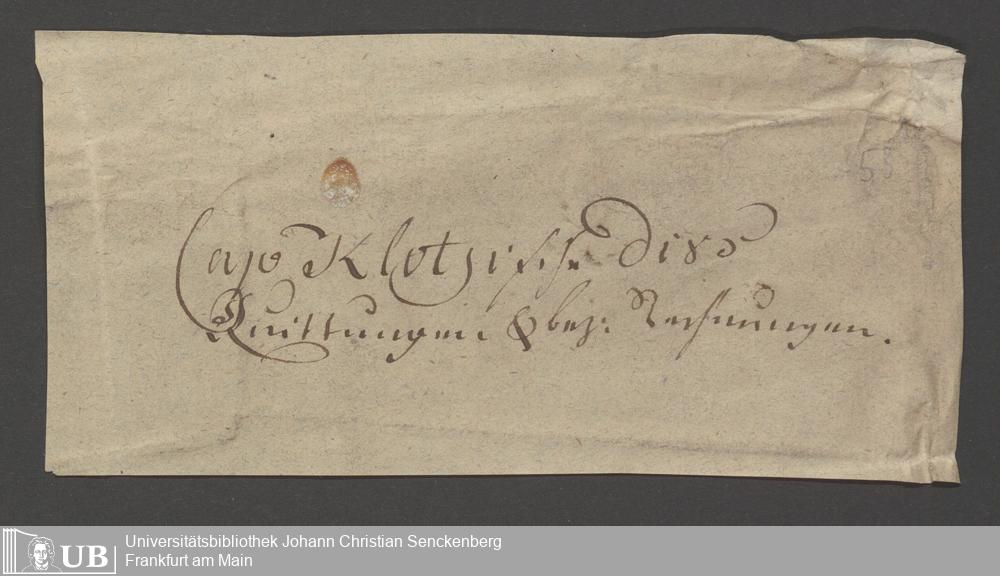 53
Cajo Klotzische Divs
Quittungen & bez: Rechnungen.
UB
Universitätsbibliothek Johann Christian Senckenberg
Frankfurt am Main